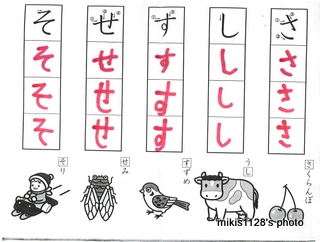 さ
さ
さ
さ
さくらんぼ
し
し
し
し
うし
す
す
す
す
すずめ
せ
せ
せ
せ
せみ
そ
そ
そ
そ
そり
mikis1128's photo